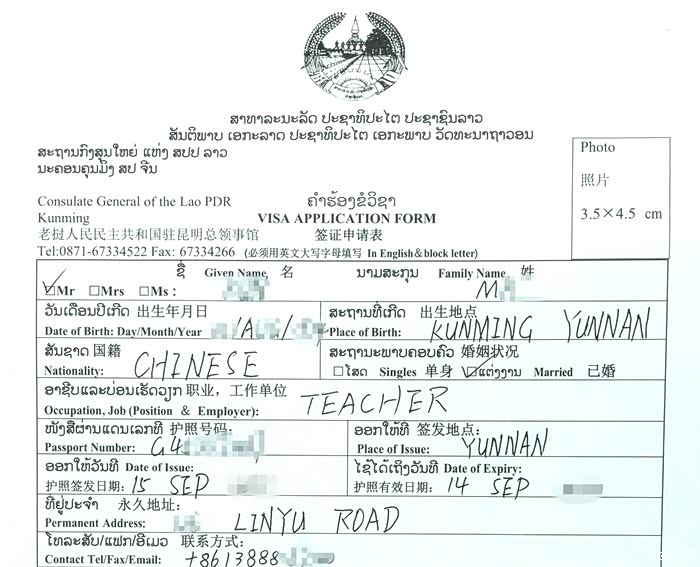 ສາທາລະນະລັດ ປະຊາທິປະໄຕ ປະຊາຊົນລາວ
ສັນຕິພາບ ເອກະລາດ ປະຊາທິປະໄຕ ເອກະພາບ ວັດທະນາຖາວອນ
ສະຖານກົງສຸນໃຫຍ່ ແຫ່ງ ສປປ ລາວ
ນະຄອນຄຸນມິງ ສປ ຈີນ
Photo
照片
3.5×4.5 cm
Consulate General of the Lao PDR ຄຳຮ້ອງຂໍວິຊາ
Kunming VISA APPLICATION FORM
老挝人民民主共和国驻昆明总领事馆 签证申请表
Tel:0871-67334522 Fax: 67334266 (必须用英文大写字母填写 In English＆block letter)
ຊື່ Given Name 名 ນາມສະກຸນ Family Name 姓
☑Mr □Mrs □Ms : M
ວັນເດືອນປີເກີດ 出生年月日 ສະຖານທີ່ເກີດ 出生地点
Date of Birth: Day/Month/Year /AUG/ Place of Birth: KUNMING YUNNAN
ສັນຊາດ 国籍 ສະຖານະພາບຄອບຄົວ 婚姻状况
Nationality: CHINESE □ໂສດ Singles 单身 ☑ແຕ່ງງານ Married 已婚
ອາຊີບແລະບ່ອນເຮັດວຽກ 职业，工作单位
Occupation, Job (Position & Employer): TEACHER
ໜັງສືຜ່ານແດນເລກທີ 护照号码: ອອກໃຫ້ທີ່ 签发地点:
Passport Number: G4 Place of Issue: YUNNAN
ອອກໃຫ້ວັນທີ Date of Issue: ໃຊ້ໄດ້ເຖິງວັນທີ Date of Expiry:
护照签发日期: 15 SEP 护照有效日期: 14 SEP
ທີ່ຢູ່ປະຈຳ 永久地址:
Permanent Address: LINYU ROAD
ໂທລະສັບ/ແຟກ/ອີເມວ 联系方式:
Contact Tel/Fax/Email: +8613888